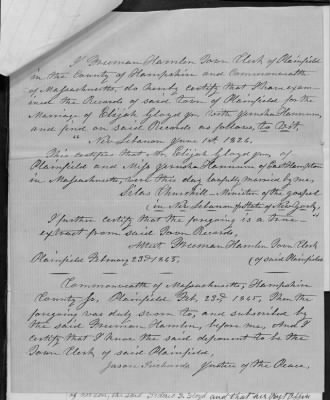 I Freeman Hamlen Town Clerk of Plainfield
in the County of Hampshire and Commonwealth
of Massachusetts, do hereby certify that I have exam
ined the Records of said town of Plainfield for the
Marriage of Elijah Gloyd jun with Jerusha Hannum,
and find on said Records as follows, to Wit,
"New Lebanon June 1st 1826.
This certifies that Mr Elijah Gloyd jun of
Plainfield and Miss Jerusha Hannum of Easthampton
in Massachusetts, were this day lawfully married by me,
Silas Churchill - Minister of the gospel
in New Lebanon State of New York,
I further certify that the forgoing is a true
extract from said Town Records,
Attest Freeman Hamlen Town Clerk
Plainfield February 23d 1845, (of said Plainfield
Commonwealth of Massachusetts, Hampshire
County Ss, Plainfield Feb, 23d 1845, Then the
forgoing was duly sworn to, and subscribed by
the said Freeman Hamlen, before me, And I
certify that I know the said deponent to be the
Town Clerk of said Plainfield,
Jason Richards Justice of the Peace,
and that